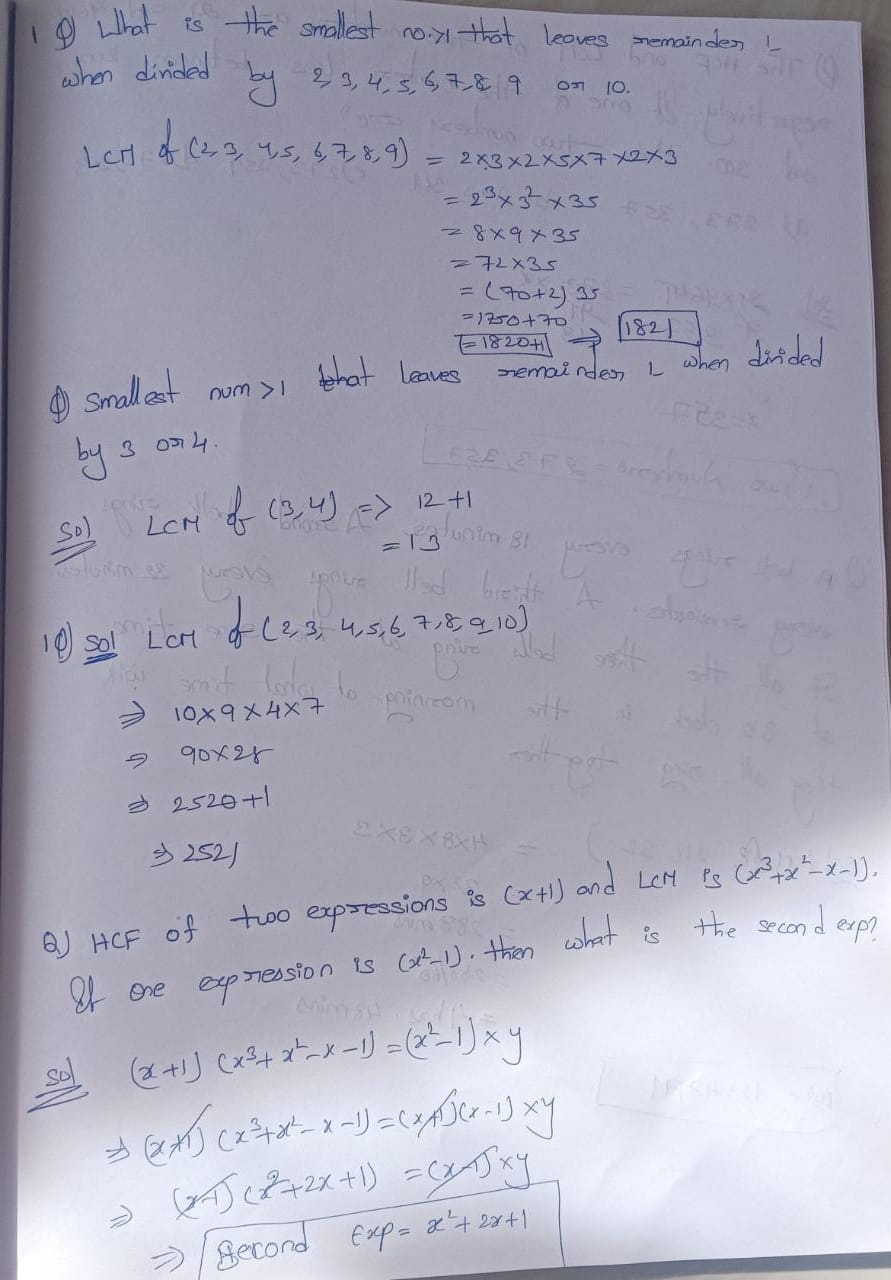 1 Q) What is the smallest no.>1 that leaves remainder 1
when divided by 2, 3, 4, 5, 6, 7, 8, 9 or 10.
LCM of (2, 3, 4, 5, 6, 7, 8, 9) = 2×3×2×5×7×2×3
= 2³×3²×35
= 8×9×35
= 72×35
= (70+2) 35
= 1750+70
= 1820+1 ⇒ 1821
Q) Smallest num >1 that leaves remainder 1 when divided
by 3 or 4.
Sol) LCM of (3, 4) => 12+1
= 13
1Q) Sol LCM of (2, 3, 4, 5, 6, 7, 8, 9, 10)
⇒ 10×9×4×7
⇒ 90×28
⇒ 2520+1
⇒ 2521
Q) HCF of two expressions is (x+1) and LCM is (x³+x²-x-1).
If one expression is (x²-1). then what is the second exp?
Sol (x+1) (x³+x²-x-1) = (x²-1) × y
⇒ (x+1) (x³+x²-x-1) = (x+1)(x-1) × y
⇒ (x-1) (x²+2x+1) = (x-1) × y
⇒ Second Exp = x²+2x+1